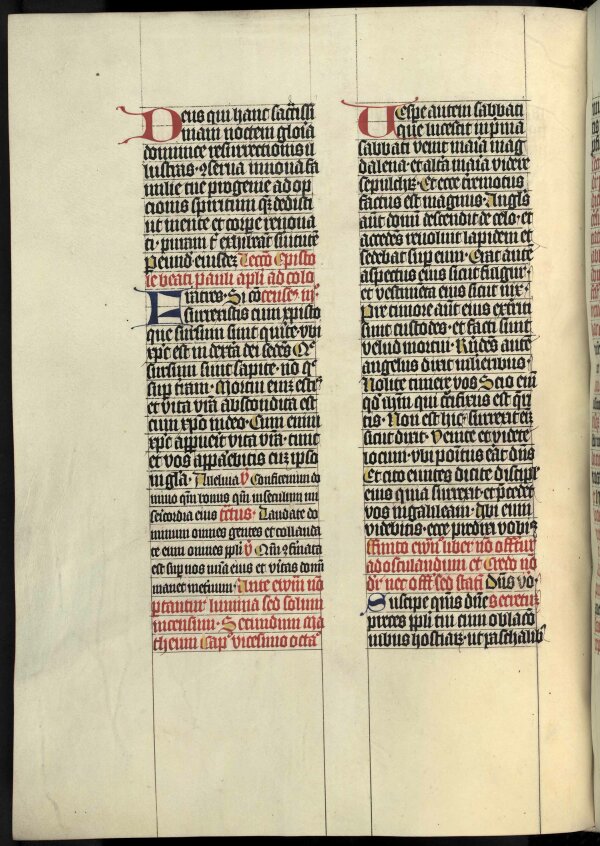 Deus qui hanc sacrissi
mam noctem gloia
dominice resurrectionis il
lustras · 9serua in noua fa
milie tue progenie ad op
cionis spiritum que dedisti
ut mente et corpe renoua
ti · puram t exhibeat seruitute
Per eiusdem Lecco Epistole
le beati pauli apli ad colo
Fratres · Si co censes iii
surrexistis cum xpisto
que sursum sunt querite · vbi
xpc est in dextra dei sedens Que
sursum sunt sapite · no que
sup tram · Mortui enim estis
et vita vra abscondita est
cum xpo in deo · Cum enim
xpc appuerit vita vra · tunc
et vos appaebitis cum ipso
in gla · Alleluia v Confitemini do
mino qm bonus qm in seculum mi
sericordia eius Tctus · Laudate do
minum omnes gentes et collauda
te eum omnes pli v Qm 9firmata
est sup nos mia eius et vitas domi
manet in eternum · Ante ewm no
portantur lumina sed solum
incensum · Secundum ma
theum Cap vicesimo octa
Vespe autem sabbati
que lucescit in prima
sabbati venit maia mag
dalena · et altera maia videre
sepulchrum · Et ecce terremotus
factus est magnus · Angls
aut domi descendit de celo · et
accedens reuoluit lapidem et
sedebat sup eum · Erat autem
aspectus eius sicut fulgur ·
et vestimenta eius sicut nix ·
Pre timore aut eius exterriti
sunt custodes · et facti sunt
velud mortui · Rudens aute
angelus dixit mulieribus ·
Nolite timere vos Scio eni
qd ihm qui crucifixus est que
ritis · Non est hic · surrexit eni
sicut dixit · Venite et videte
locum · vbi positus erat dns
Et cito euntes dicite discipulis
eius quia surrexit · et precedet
vos in galileam · Ibi eum
videbitis · ecce predixi vobis
Finito ewio liber no offertur
ad osculandum et Credo no
dr nec offm sed statim Dns vo ·
Suscipe qms dne Secretum
preces ppli tui cum oblacio
nibus hostiarum · ut paschalibus